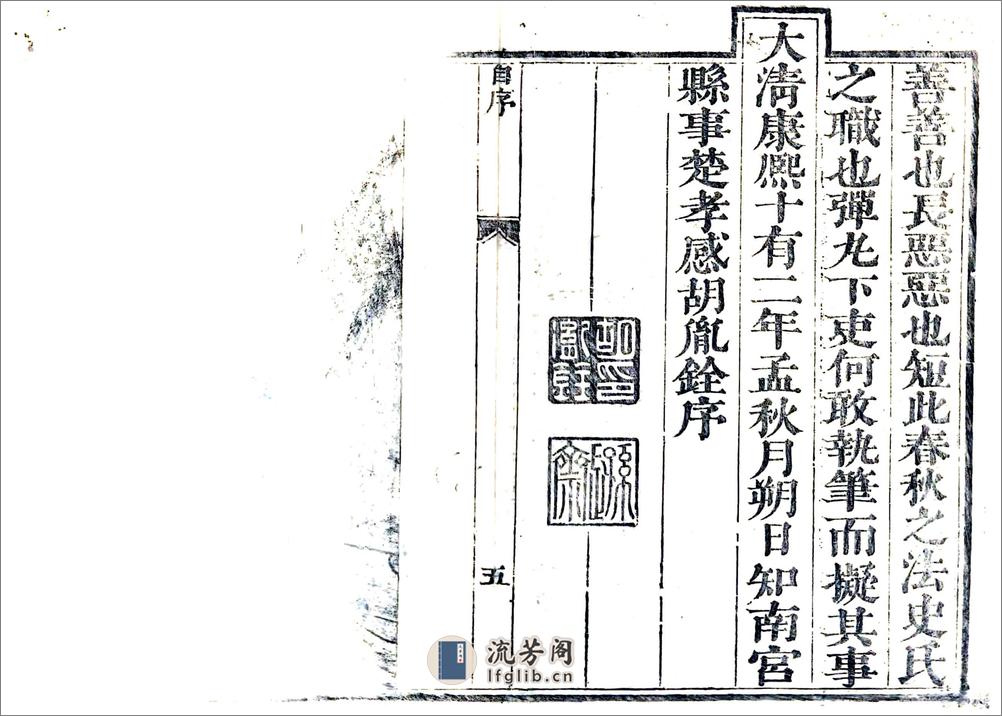 善善也長惡惡也短此春秋之法史氏
之職也彈丸下吏何敢執筆而擬其事
大淸康熙十有二年孟秋月朔日知南宮
縣事楚孝感胡胤銓序
自序
五
流芳阁
lfglib.cn